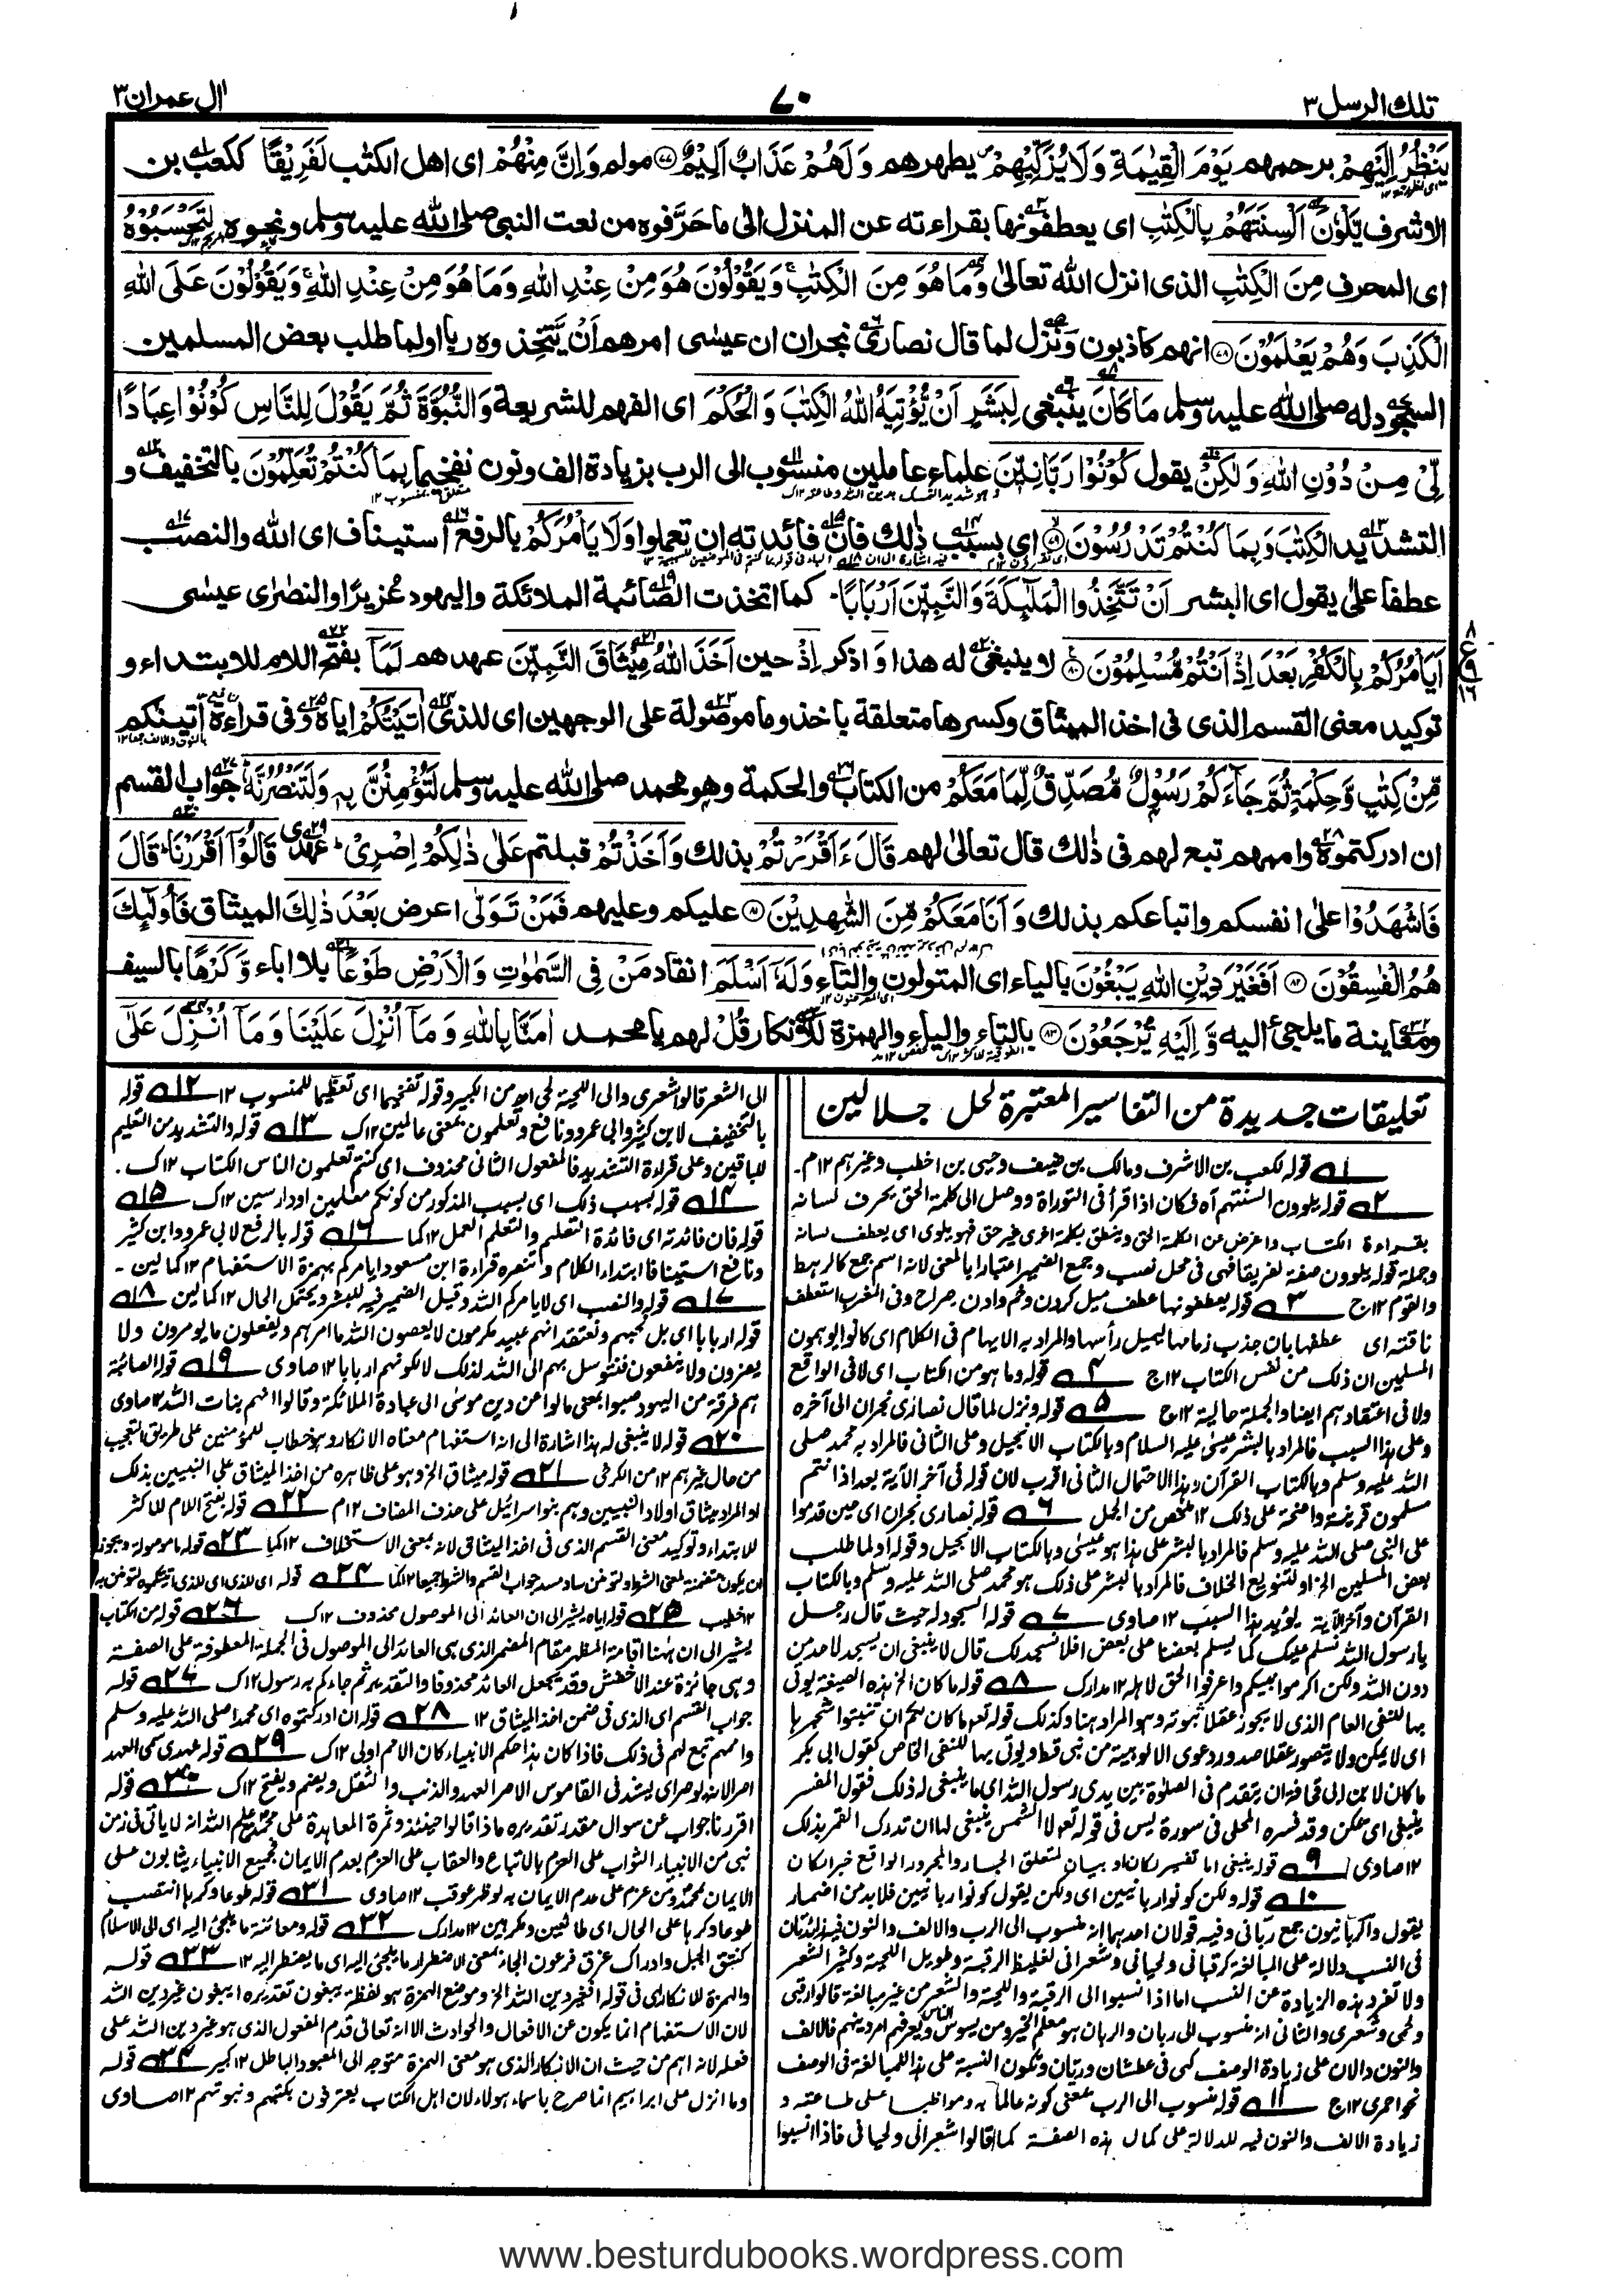 تلك الرسل ٣
٧٠
اٰل عمران ٣
يَنْظُرُ اِلَيْهِمْ يرحمهم يَوْمَ الْقِيٰمَةِ وَلَا يُزَكِّيْهِمْ يطهرهم وَلَهُمْ عَذَابٌ اَلِيْمٌ ۝٧٧ مولم وَاِنَّ مِنْهُمْ اى اهل الكتٰب لَفَرِيْقًا ككعب بن
الاشرف يَّلْوٗنَ اَلْسِنَتَهُمْ بِالْكِتٰبِ اى يعطفونها بقراءته عن المنزل الى ما حَرَّفوه من نعت النبى صلى الله عليه وسلم ونحوه لِتَحْسَبُوْهُ
اى المحرف مِنَ الْكِتٰبِ الذى انزل الله تعالىٰ وَمَا هُوَ مِنَ الْكِتٰبِ وَيَقُوْلُوْنَ هُوَ مِنْ عِنْدِ اللهِ وَمَا هُوَ مِنْ عِنْدِ اللهِ وَيَقُوْلُوْنَ عَلَى اللهِ
الْكَذِبَ وَهُمْ يَعْلَمُوْنَ ۝٧٨ انهم كاذبون ونزل لما قال نصارىٰ نجران ان عيسٰى امرهم اَنْ يَّتَّخِذوه ربا اولما طلب بعض المسلمين
السجود له صلى الله عليه وسلم مَا كَانَ ينبغى لِبَشَرٍ اَنْ يُّؤْتِيَهُ اللهُ الْكِتٰبَ وَالْحُكْمَ اى الفهم للشريعة وَالنُّبُوَّةَ ثُمَّ يَقُوْلَ لِلنَّاسِ كُوْنُوْا عِبَادًا
لِّىْ مِنْ دُوْنِ اللهِ وَلٰكِنْ يقول كُوْنُوْا رَبَّانِيّٖنَ علماء عاملين منسوب الى الرب بزيادة الف ونون تفخيما بِمَا كُنْتُمْ تُعَلِّمُوْنَ بالتخفيف و
التشديد الْكِتٰبَ وَبِمَا كُنْتُمْ تَدْرُسُوْنَ ۝٧٩ اى بسبب ذٰلك فان فائدته ان تعملوا وَلَا يَاْمُرَكُمْ بالرفع استيناف اى الله والنصب
عطفا علىٰ يقول اى البشر اَنْ تَتَّخِذُوا الْمَلٰٓئِكَةَ وَالنَّبِيّٖنَ اَرْبَابًا كما اتخذت الصّائبة الملائكة واليهود عُزيرًا والنصٰرٰى عيسٰى
اَيَاْمُرُكُمْ بِالْكُفْرِ بَعْدَ اِذْ اَنْتُمْ مُّسْلِمُوْنَ ۝٨٠ لا ينبغى له هذا وَ اذكر اِذْ حين اَخَذَ اللهُ مِيْثَاقَ النَّبِيّٖنَ عهدهم لَمَآ بفتح اللام للابتداء و
توكيد معنى القسم الذى فى اخذ الميثاق وكسرها متعلقة باخذ وما موصولة على الوجهين اى للذى اٰتَيْتُكُمْ اياه وفى قراءة اٰتينٰكم
مِّنْ كِتٰبٍ وَّحِكْمَةٍ ثُمَّ جَآءَكُمْ رَسُوْلٌ مُّصَدِّقٌ لِّمَا مَعَكُمْ من الكتاب والحكمة وهو محمد صلى الله عليه وسلم لَتُؤْمِنُنَّ بِهٖ وَلَتَنْصُرُنَّهٗ جواب القسم
ان ادركتموه واممهم تبع لهم فى ذٰلك قال تعالىٰ لهم قَالَ ءَاَقْرَرْتُمْ بذلك وَاَخَذْتُمْ قبلتم عَلٰى ذٰلِكُمْ اِصْرِىْ عهدى قَالُوْٓا اَقْرَرْنَا قَالَ
فَاشْهَدُوْا علىٰ انفسكم واتباعكم بذلك وَاَنَا مَعَكُمْ مِّنَ الشّٰهِدِيْنَ ۝٨١ عليكم وعليهم فَمَنْ تَوَلّٰى اعرض بَعْدَ ذٰلِكَ الميثاق فَاُولٰٓئِكَ
هُمُ الْفٰسِقُوْنَ ۝٨٢ اَفَغَيْرَ دِيْنِ اللهِ يَبْغُوْنَ بالياء اى المتولون والتاء وَلَهٗٓ اَسْلَمَ انقاد مَنْ فِى السَّمٰوٰتِ وَالْاَرْضِ طَوْعًا بلا اباء وَّكَرْهًا بالسيف
ومعاينة ما يلجئ اليه وَّاِلَيْهِ يُرْجَعُوْنَ ۝٨٣ بالتاء والياء والهمزة للانكار قُلْ لهم يا محمد اٰمَنَّا بِاللهِ وَمَآ اُنْزِلَ عَلَيْنَا وَمَآ اُنْزِلَ عَلٰٓى
تعليقات جديدة من التفاسير المعتبرة لحل جلالين
١ قوله ككعب بن الاشرف ومالك بن ضيف وحيى بن اخطب وغيرهم ١٢م
٢ قوله يلوون السنتهم آه فكان اذا قرأ فى التوراة ووصل الى كلمة الحق يحرف لسانه
بقراءة الكتاب واعرض عن الكلمة الحق وينطق بكلمة اخرى غير حق فهو يلوى اى يعطف لسانه
وجملة قوله يلوون صفة لفريقا فهى فى محل نصب وجمع الضمير اعتبارا بالمعنى لانه اسم جمع كالرهط
والقوم ١٢ج ٣ قوله يعطفونها عطف ميل كردن وخم دادن صراح وفى المغرب استعطف
ناقته اى عطفها بان جذب زمامها ليميل رأسها والمراد به الايهام فى الكلام اى كانوا يوهمون
المسلمين ان ذلك من نفس الكتاب ١٢ج ٤ قوله وما هو من الكتاب اى لا فى الواقع
ولا فى اعتقادهم ايضا والجملة حالية ١٢ج ٥ قوله ونزل لما قال نصارى نجران الى آخره
وعلى هذا السبب فالمراد بالبشر عيسىٰ عليه السلام وبالكتاب الانجيل وعلى الثانى فالمراد به محمد صلى
الله عليه وسلم وبالكتاب القرآن وهذا الاحتمال الثانى اقرب لان قوله فى آخر الآية بعد اذ انتم
مسلمون قرينة واضحة على ذلك ١٢ ملخص من الجمل ٦ قوله نصارى نجران اى حين قدموا
على النبى صلى الله عليه وسلم فالمراد بالبشر على هذا هو عيسىٰ وبالكتاب الانجيل وقوله اولما طلب
بعض المسلمين الخ او لتنويع الخلاف فالمراد بالبشر على ذلك هو محمد صلى الله عليه وسلم وبالكتاب
القرآن وآخر الآية يؤيد هذا السبب ١٢ صاوى ٧ قوله السجود له حيث قال رجل
يا رسول الله نسلم عليك كما يسلم بعضنا على بعض افلا نسجد لك قال لا ينبغى ان يسجد لاحد من
دون الله ولكن اكرموا نبيكم واعرفوا الحق لاهله ١٢ مدارك ٨ قوله ما كان الخ هذه الصيغة يوتى
بها للنفى العام الذى لا يجوز عقلا ثبوته وهو المراد هنا وكذلك قوله تعه ما كان لكم ان تنبتوا شجرها
اى لا يمكن ولا يتصور عقلا صدور دعوى الالوهية من نبى قط ويوتى بها للنفى الخاص كقول ابى بكر
ما كان لابن ابى قحافة ان يتقدم فى الصلوٰة بين يدى رسول الله اى ما ينبغى له ذلك فقول المفسر
ينبغى اى يمكن وقد فسره المحلى فى سورة يس فى قوله تعه لا الشمس ينبغى لها ان تدرك القمر بذلك
١٢ صاوى ٩ قوله ينبغى اما تفسير لكان او بيان لمتعلق الجار والمجرور الواقع خبر الكان
١٠ قوله ولكن كونوا ربانيين اى ولكن يقول كونوا ربانيين فلابد من اضمار
يقول والربانيون جمع ربانى وفيه قولان احدهما انه منسوب الى الرب والالف والنون فيه زائدتان
فى النسب دلالة على المبالغة كرقبانى ولحيانى وشعرانى لغليظ الرقبة وطويل اللحية وكثير الشعر
ولا تفرد هذه الزيادة عن النسب اما اذا نسبوا الى الرقبة واللحية والشعر من غير مبالغة قالوا رقبى
ولحى وشعرى والثانى انه منسوب الى ربان والربان هو معلم الخير ومن يسوس الناس ويعرفهم امر دينهم فالالف
والنون دالان على زيادة الوصف كهى فى عطشان وريان وتكون النسبة على هذا للمبالغة فى الوصف
نحو احمرى ١٢ج ١١ قوله منسوب الى الرب بمعنى كونه عالما به ومواظبا على طاعته و
زيادة الالف والنون فيه للدلالة على كمال هذه الصفة كما قالوا شعرانى ولحيانى فاذا نسبوا
الى الشعر قالوا شعرى والى اللحية لحى ابو من الكبير وقوله تفخيما اى تعظيما للمنسوب ١٢ ١٢ قوله
بالتخفيف لابن كثير وابى عمرو ونافع وتعلمون بمعنى عالمين ١٢ك ١٣ قوله والتشديد من التعليم
للباقين وعلى قراءة التشديد فالمفعول الثانى محذوف اى كنتم تعلمون الناس الكتاب ١٢ك
١٤ قوله بسبب ذلك اى بسبب المذكور من كونكم معلمين او دارسين ١٢ك ١٥
قوله فان فائدته اى فائدة التعليم والتعلم العمل ١٢ كما ١٦ قوله بالرفع لابى عمرو وابن كثير
ونافع استينافا ابتداء الكلام وتنصره قراءة ابن مسعود ايامركم بهمزة الاستفهام ١٢ كمالين
١٧ قوله والنصب اى لا يامركم الله وقيل الضمير فيه للبشر ويحتمل الحال ١٢ كمالين ١٨
قوله اربابا اى بل نحبهم ونعتقد انهم عبيد مكرمون لا يعصون الله ما امرهم ويفعلون ما يومرون ولا
يضرون ولا ينفعون فنتوسل بهم الى الله لذلك لا لكونهم اربابا ١٢ صاوى ١٩ قوله الصائبة
هم فرقة من اليهود صبوا بمعنى مالوا عن دين موسىٰ الى عبادة الملائكة وقالوا انهم بنات الله ١٢ صاوى
٢٠ قوله لا ينبغى له هذا اشارة الى انه استفهام معناه الانكار وهو خطاب للمؤمنين على طريق التعجيب
من حال غيرهم ١٢ من الكرخى ٢١ قوله ميثاق الخ وهو على ظاهره من اخذ الميثاق على النبيين بذلك
او المراد ميثاق اولاد النبيين وهم بنو اسرائيل على حذف المضاف ١٢م ٢٢ قوله بفتح اللام للاكثر
للابتداء وتوكيد معنى القسم الذى فى اخذ الميثاق لانه بمعنى الاستحلاف ١٢ كما ٢٣ قوله ما موصولة ويجوز
ان يكون متضمنة لمعنى الشرط ولتومنن ساد مسد جواب القسم والشرط جميعا ١٢ كما ٢٤ قوله اى للذى اى للذى آتيتكم لتومنن به
١٢ خطيب ٢٥ قوله اياه يشير الى ان العائد الى الموصول محذوف ١٢ك ٢٦ قوله من الكتاب
يشير الى ان هنا اقامة المظهر مقام المضمر الذى هى العائد الى الموصول فى الجملة المعطوفة على الصفة
وهى جائزة عند الاخفش وقد يجعل العائد محذوفا والتقدير ثم جاءكم به رسول ١٢ك ٢٧ قوله
جواب القسم اى الذى فى ضمن اخذ الميثاق ١٢ ٢٨ قوله ان ادركتموه اى محمدا صلى الله عليه وسلم
واممهم تبع لهم فى ذلك فاذا كان هذا حكم الانبياء كان الامم اولى ١٢ك ٢٩ قوله عهدى سمى العهد
اصرا لانه يوصر اى يشد فى القاموس الاصر العهد والذنب والثقل ويضم ويفتح ١٢ك ٣٠ قوله
اقررنا جواب عن سوال مقدر تقديره ماذا قالوا حينئذ وثمرة المعاهدة على محمد مع علم الله انه لا ياتى فى زمن
نبى من الانبياء الثواب على العزم بالاتباع والعقاب على العزم بعدم الايمان فجميع الانبياء يثابون على
الايمان بمحمد ومن عزم على عدم الايمان به لو ظهر عوقب ١٢ صاوى ٣١ قوله طوعا وكرها انتصب
طوعا وكرها على الحال اى طائعين ومكرهين ١٢ مدارك ٣٢ قوله ومعائنة ما يلجئ اليه اى الى الاسلام
كنتق الجبل وادراك غرق فرعون الجاء بمعنى الاضطرار ما يلجئ اليه اى ما يضطر اليه ١٢ ٣٣ قوله
والهمزة للانكار اى فى قوله افغير دين الله الخ وموضع الهمزة هو لفظة يبغون تقديره ايبغون غير دين الله
لان الاستفهام انما يكون عن الافعال والحوادث الا انه تعالى قدم المفعول الذى هو غير دين الله على
فعله لانه اهم من حيث ان الانكار الذى هو معنى الهمزة متوجه الى المعبود الباطل ١٢ كبير ٣٤ قوله
وما انزل على ابراهيم انما صرح باسماء هولاء لان اهل الكتاب يعترفون بكتبهم ونبوتهم ١٢ صاوى
www.besturdubooks.wordpress.com